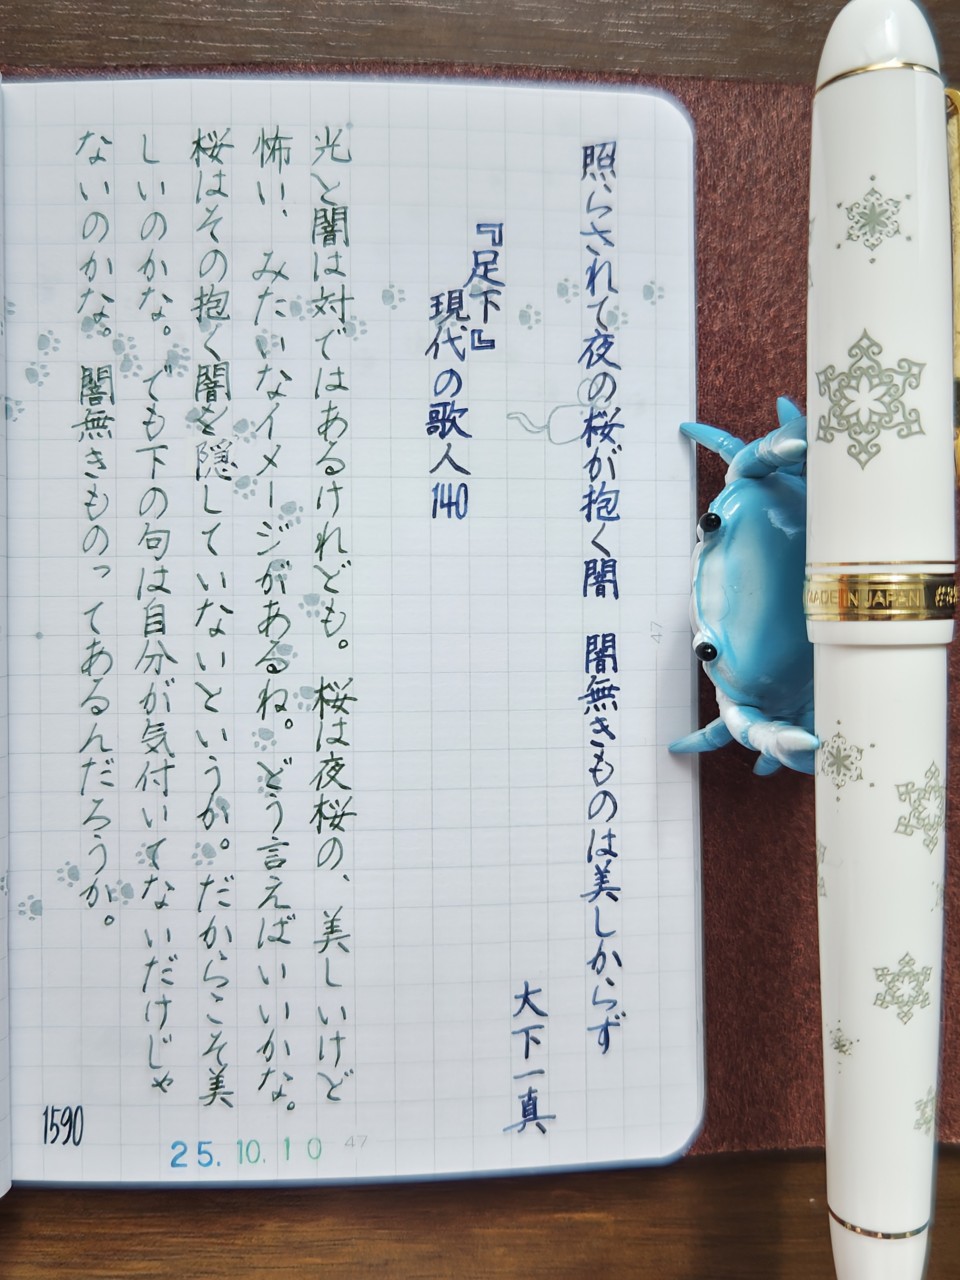 照らされて夜の桜が抱く闇　闇無きものは美しからず
大下一真
『足下』
現代の歌人140
光と闇は対ではあるけれども。桜は夜桜の、美しいけど
怖い、みたいなイメージがあるね。どう言えばいいかな。
桜はその抱く闇を隠していないというか。だからこそ美
しいのかな。でも下の句は自分が気付いてないだけじゃ
ないのかな。闇無きものってあるんだろうか。
1590
25.10.10
47
47
MADE IN JAPAN